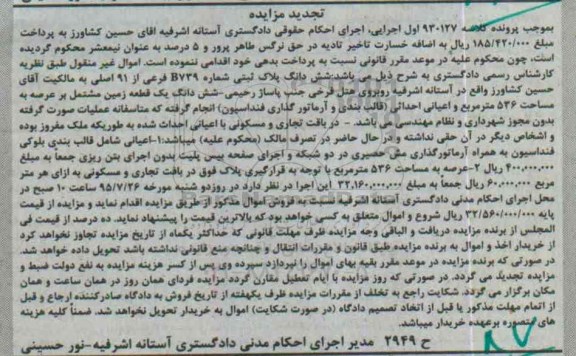 تجدید مزایده
بموجب پرونده کلاسه ۹۳۰۱۲۷ اول اجرایی، اجرای احکام حقوقی دادگستری آستانه اشرفیه اقای حسین کشاورز به پرداخت
مبلغ ۱۸۵/۴۲۰/۰۰۰ ریال به اضافه خسارت تاخیر تادیه در حق نرگس طاهر پرور و ۵ درصد به عنوان نیمعشر محکوم گردیده
است، چون محکوم علیه در موعد مقرر قانونی نسبت به پرداخت بدهی خود اقدامی ننموده است. اموال غیر منقول طبق نظریه
کارشناس رسمی دادگستری به شرح ذیل می باشد:شش دانگ پلاک ثبتی شماره B۷۳۹ فرعی از ۹۱ اصلی به مالکیت آقای
حسین کشاورز واقع در آستانه اشرفیه روبروی هتل فرخی جنب پاساژ رحیمی-شش دانگ یک قطعه زمین مشتمل بر عرصه به
مساحت ۵۳۶ مترمربع و اعیانی احداثی (قالب بندی و آرماتور گذاری فنداسیون) انجام گرفته که متاسفانه عملیات صورت گرفته
بدون مجوز شهرداری و نظام مهندسی می باشد. - در بافت تجاری و مسکونی با اعیانی احداث شده به طوریکه ملک مفروز بوده
و اشخاص دیگر در آن حقی نداشته و در حال حاضر در تصرف مالک (محکوم علیه) میباشد:۱-اعیانی شامل قالب بندی بلوکی
فنداسیون به همراه آرماتورگذاری مش حصیری در دو شبکه و اجرای صفحه بیس پلیت بدون اجرای بتن ریزی جمعاً به مبلغ
۴۰۰,۰۰۰,۰۰۰ ریال ۲-عرصه به مساحت ۵۳۶ مترمربع با توجه به قرارگیری پلاک فوق در بافت تجاری و مسکونی به ازای هر متر
مربع ۶۰,۰۰۰,۰۰۰ ریال جمعاً به مبلغ ۳۲,۱۶۰,۰۰۰,۰۰۰ این اجرا در نظر دارد در روزدو شنبه مورخه ۹۵/۷/۲۶ ساعت ۱۰ صبح در
محل اجرای احکام مدنی دادگستری آستانه اشرفیه نسبت به فروش اموال مذکور از طریق مزایده اقدام نماید و مزایده از قیمت
پایه ۳۲/۵۶۰/۰۰۰/۰۰۰ ریال شروع و اموال متعلق به کسی خواهد بود که بالاترین قیمت را پیشنهاد نماید. ده درصد از قیمت فی
المجلس از برنده مزایده دریافت و الباقی وجه مزایده ظرف مهلت قانونی که حداکثر یکماه از تاریخ مزایده تجاوز نخواهد کرد
از خریدار اخذ و اموال به برنده مزایده طبق قانون و مقررات انتقال و چنانچه منع قانونی نداشته باشد تحویل داده خواهد شد.
در صورتی که برنده مزایده در موعد مقرر بقیه بهای اموال را نپردازد سپرده وی پس از کسر هزینه مزایده به نفع دولت ضبط و
مزایده تجدید می گردد. در صورتی که روز مزایده با ایام تعطیل مقارن گردد مزایده فردای همان روز در همان ساعت و همان
مکان برگزار می گردد. شکایت راجع به تخلف از مقررات مزایده ظرف یکهفته از تاریخ فروش به دادگاه صادرکننده ارجاع و قبل
از اتمام مهلت مذکور یا قبل از اتخاذ تصمیم دادگاه (در صورت شکایت) اموال به خریدار تحویل نخواهد شد. ضمناً کلیه هزینه
های متصوره برعهده خریدار میباشد.
ح ۲۹۴۹ مدیر اجرای احکام مدنی دادگستری آستانه اشرفیه-نور حسینی